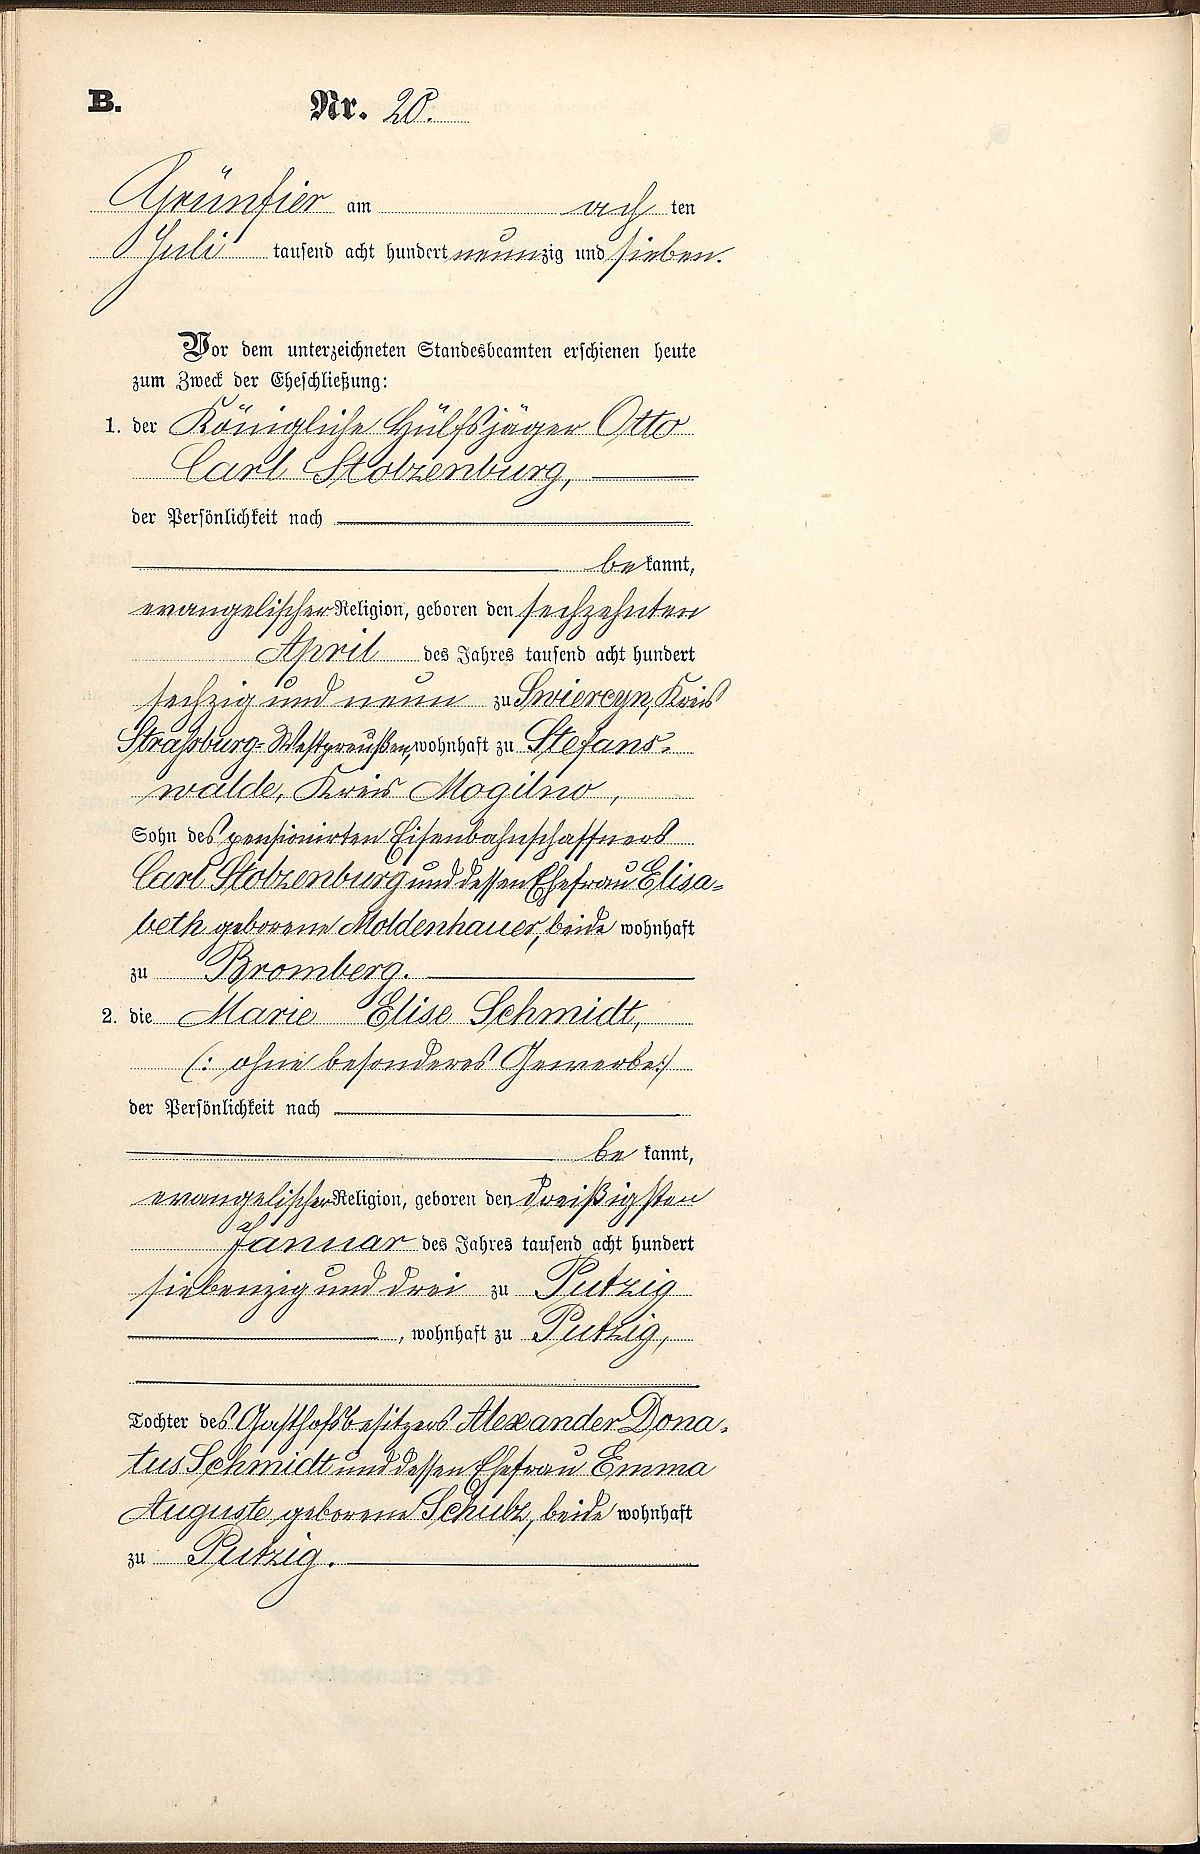 B. Nr. 20.
Grünfier am ach ten
Juli tausend acht hundert neunzig und sieben.
Vor dem unterzeichneten Standesbeamten erschienen heute
zum Zweck der Eheschließung:
1. der Königliche Hülfsjäger Otto
Carl Stolzenburg,
der Persönlichkeit nach
be kannt,
evangelischer Religion, geboren den sechzehnten
April des Jahres tausend acht hundert
sechzig und neun zu Swiercyn, Kreis
Straßburg-Westpreußen, wohnhaft zu Stefans-
walde, Kreis Mogilno,
Sohn des pensionirten Eisenbahnschaffners
Carl Stolzenburg und dessen Ehefrau Elisa-
beth geborene Moldenhauer, beide wohnhaft
zu Bromberg.
2. die Marie Elise Schmidt,
(: ohne besonderes Gewerbe :)
der Persönlichkeit nach
be kannt,
evangelischer Religion, geboren den dreißigsten
Januar des Jahres tausend acht hundert
siebenzig und drei zu Putzig
, wohnhaft zu Putzig,
Tochter des Gasthofsbesitzers Alexander Dona-
tus Schmidt und dessen Ehefrau Emma
Auguste geborene Schulz, beide wohnhaft
zu Putzig.